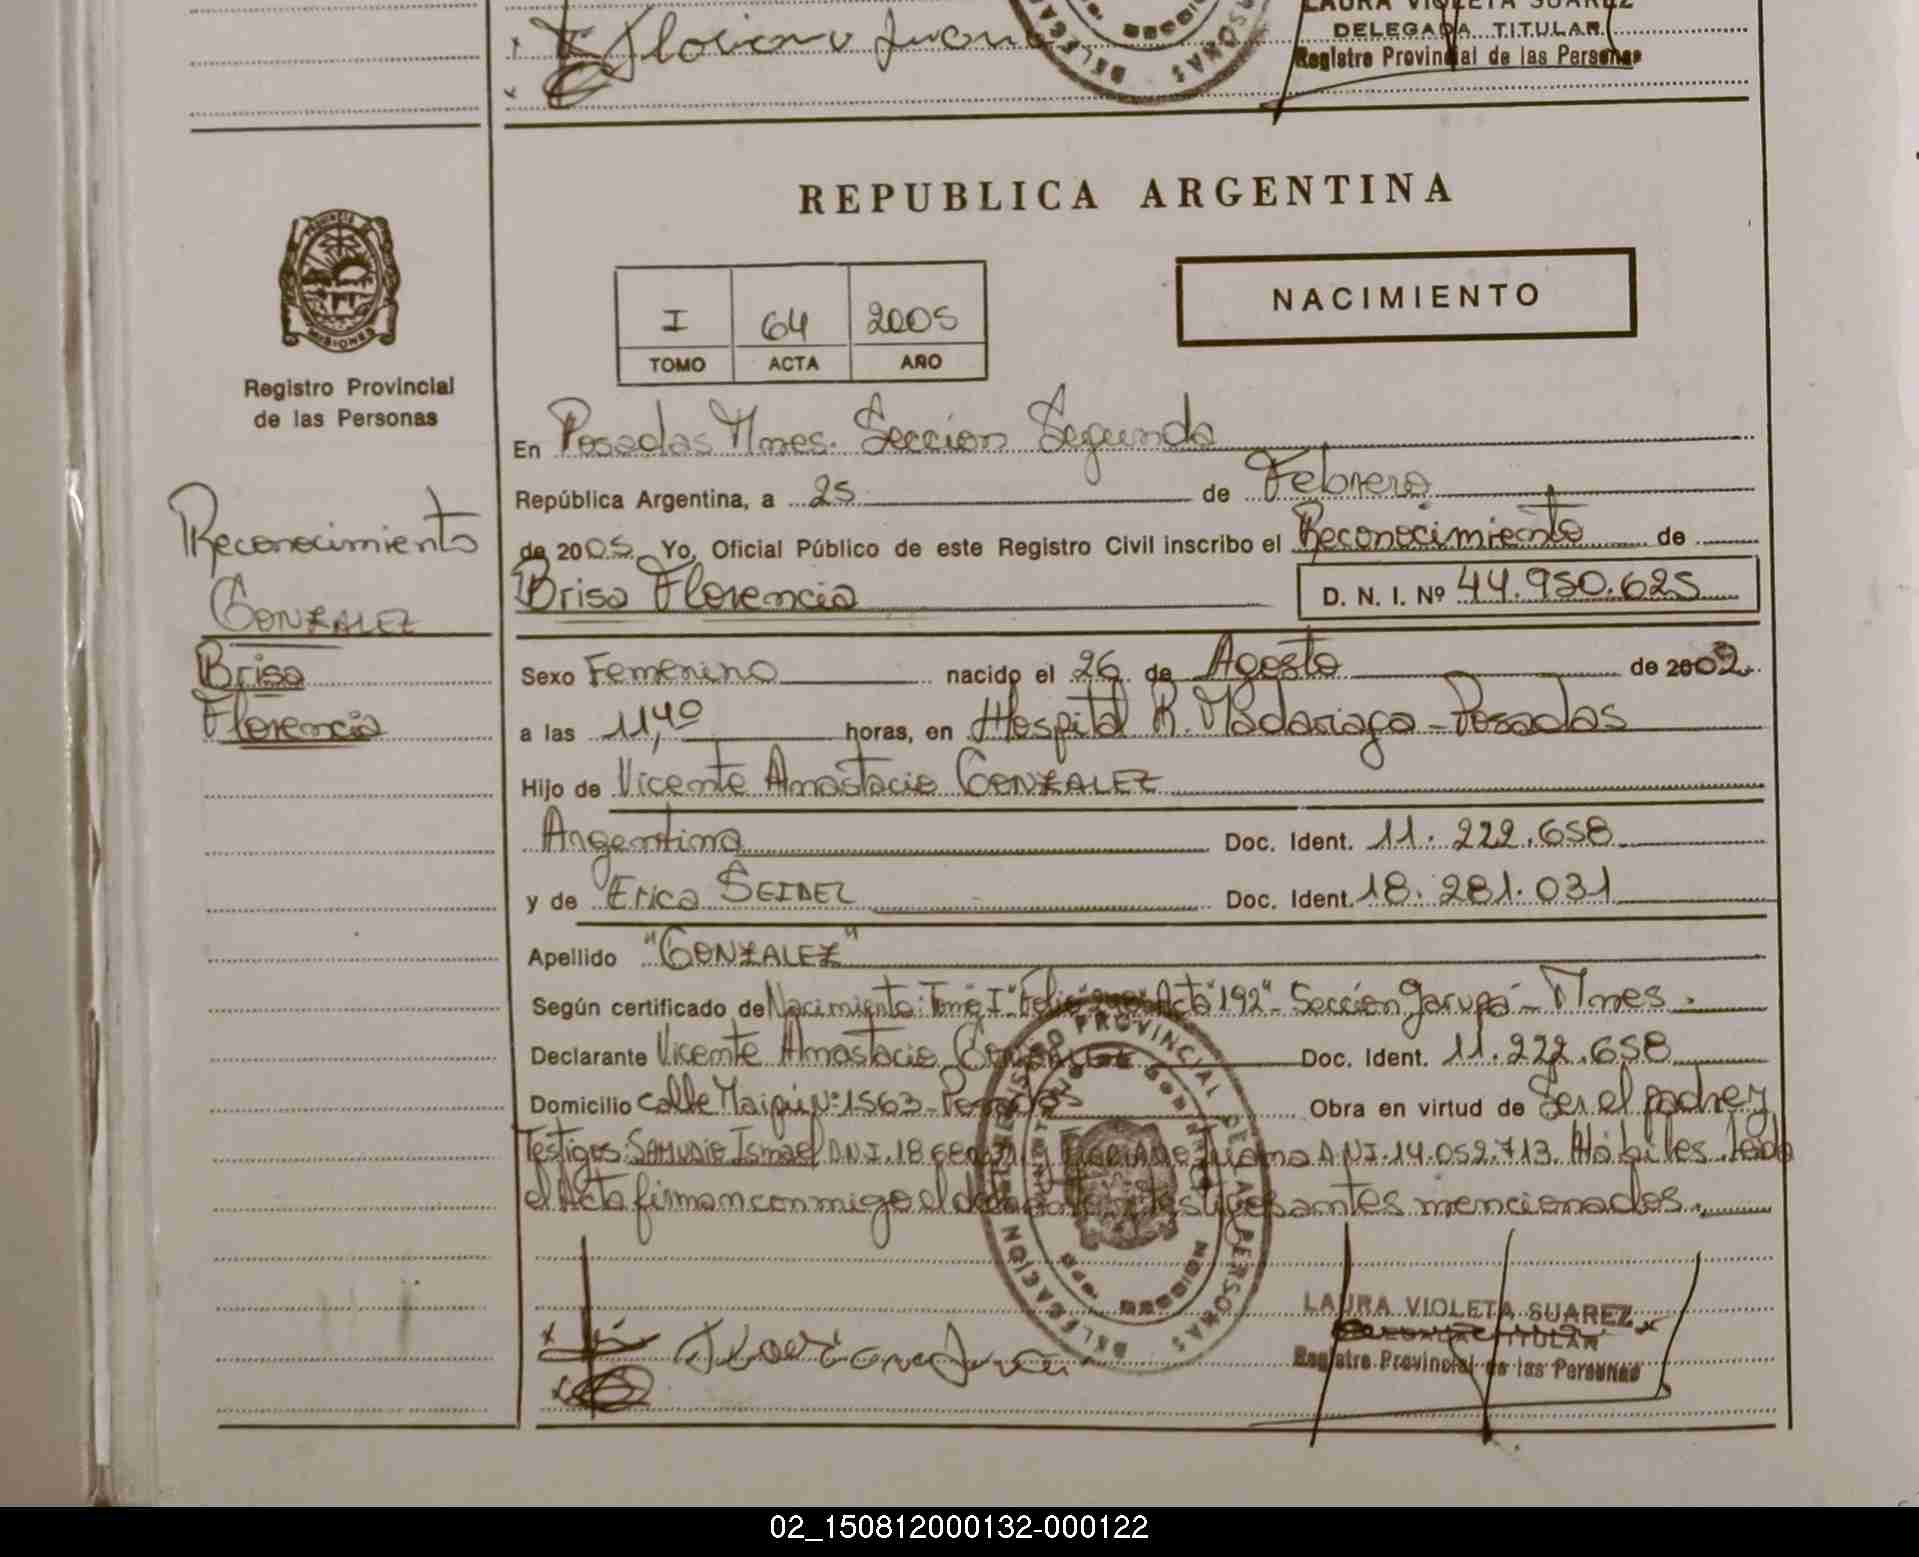 Floriano Juana
LAURA VIOLETA SUAREZ
DELEGADA TITULAR
Registro Provincial de las Personas
REPUBLICA ARGENTINA
NACIMIENTO
I 64 2005
TOMO ACTA AÑO
PROVINCIA DE
MISIONES
Registro Provincial
de las Personas
Reconocimiento
GONZALEZ
Brisa
Florencia
En Posadas Mnes. Sección Segunda
República Argentina, a 25 de Febrero
de 2005 Yo, Oficial Público de este Registro Civil inscribo el Reconocimiento de
Brisa Florencia D. N. I. Nº 44.950.625
Sexo Femenino nacido el 26 de Agosto de 2002
a las 11,40 horas, en Hospital R. Madariaga - Posadas
Hijo de Vicente Anastacio GONZALEZ
Argentina Doc. Ident. 11.222.658
y de Erica SEIDEL Doc. Ident. 18.281.031
Apellido "GONZALEZ"
Según certificado de Nacimiento: Tomo I" Folio Acta "192" - Sección Garupá - Mnes.
Declarante Vicente Anastacio GONZALEZ Doc. Ident. 11.222.658
Domicilio calle Maipú Nº 1563 - Posadas Obra en virtud de Ser el padre y
Testigos: SAMUDIO Ismael D.N.I. Juana D.N.I. 14.052.713. Hábiles. Leida
el Acta firman conmigo el declarante y testigos antes mencionados.
REGISTRO PROVINCIAL DE LAS PERSONAS
DELEGACION
MISIONES
LAURA VIOLETA SUAREZ
DELEGADA TITULAR
Registro Provincial de las Personas
02_150812000132-000122